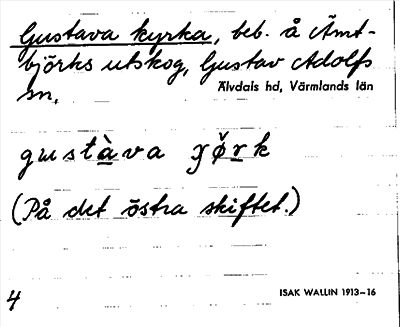 Gustava kyrka, beb. å Ämt-
björks utskog, Gustav Adolfs
sn.
Älvdals hd, Värmlands län
gustàva
(På det östra skiftet.)
4
ISAK WALLIN 1913-16